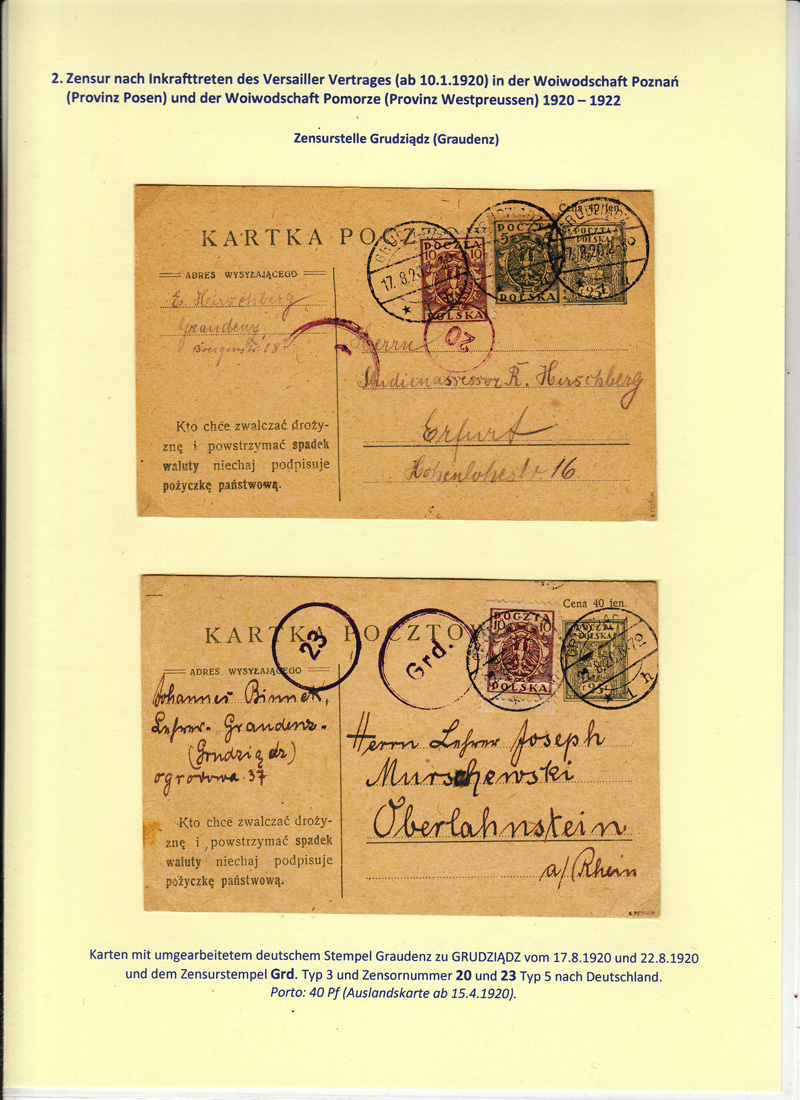 2. Zensur nach Inkrafttreten des Versailler Vertrages (ab 10.1.1920) in der Woiwodschaft Poznań
(Provinz Posen) und der Woiwodschaft Pomorze (Provinz Westpreussen) 1920 – 1922
Zensurstelle Grudziądz (Graudenz)
Cena 40 fen.
KARTKA
ADRES WYSYŁAJĄCEGO
POCZTA
10 10
POLSKA
POCZTA
POLSKA
POCZTA
POLSKA
25
17.8.20
17.8.20
E. Hirschberg
Graudenz
20
Herrn
Studienassessor R. Hirschberg
Erfurt
Hohenlohestr. 16
Kto chce zwalczać droży-
znę i powstrzymać spadek
waluty niechaj podpisuje
pożyczkę państwową.
Cena 40 fen.
KARTKA POCZTOW
23
Grd.
POCZTA
10 10
POLSKA
POCZTA
POLSKA
25
22.8.20
ADRES WYSYŁAJĄCEGO
Johannes Binnek,
Lehrer - Graudenz -
(Grudziądz)
ogrodowa 37
Herrn Lehrer Joseph
Murschewski
Oberlahnstein
a/Rhein
Kto chce zwalczać droży-
znę i powstrzymać spadek
waluty niechaj podpisuje
pożyczkę państwową.
Karten mit umgearbeitetem deutschem Stempel Graudenz zu GRUDZIĄDZ vom 17.8.1920 und 22.8.1920
und dem Zensurstempel Grd. Typ 3 und Zensornummer 20 und 23 Typ 5 nach Deutschland.
Porto: 40 Pf (Auslandskarte ab 15.4.1920).